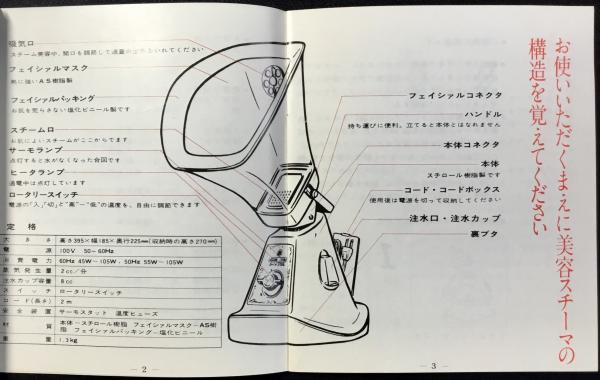 お使いいただくまえに美容スチーマの
構造を覚えてください
吸気口
スチーム美容中、開口を調節して適量の空気を入れてください
フェイシャルマスク
熱に強いAS樹脂製
フェイシャルパッキング
お肌を荒らさない塩化ビニール製です
スチーム口
お肌によいスチームがここからでます
サーモランプ
点灯すると水がなくなった合図です
ヒータランプ
通電中は点灯しています
ロータリースイッチ
電源の「入」「切」と"高"−"低"の温度を、自由に調節できます
フェイシャルコネクタ
ハンドル
持ち運びに便利。立てると本体とはなれません
本体コネクタ
本体
スチロール樹脂製です
コード・コードボックス
使用後は電源を切って収納してください
注水口・注水カップ
裏ブタ
定格
大きさ 高さ395×幅185×奥行225mm(収納時の高さ270mm)
電源 100V 50−60Hz
消費電力 60Hz 45W〜105W、50Hz 55W〜105W
蒸気発生量 2cc/分
注水カップ容量 8cc
スイッチ ロータリースイッチ
コード(長さ) 2m
安全装置 サーモスタット 温度ヒューズ
材質 本体−スチロール樹脂 フェイシャルマスク−AS樹
脂 フェイシャルパッキング−塩化ビニール
重量 1.3kg
— 2 —
— 3 —